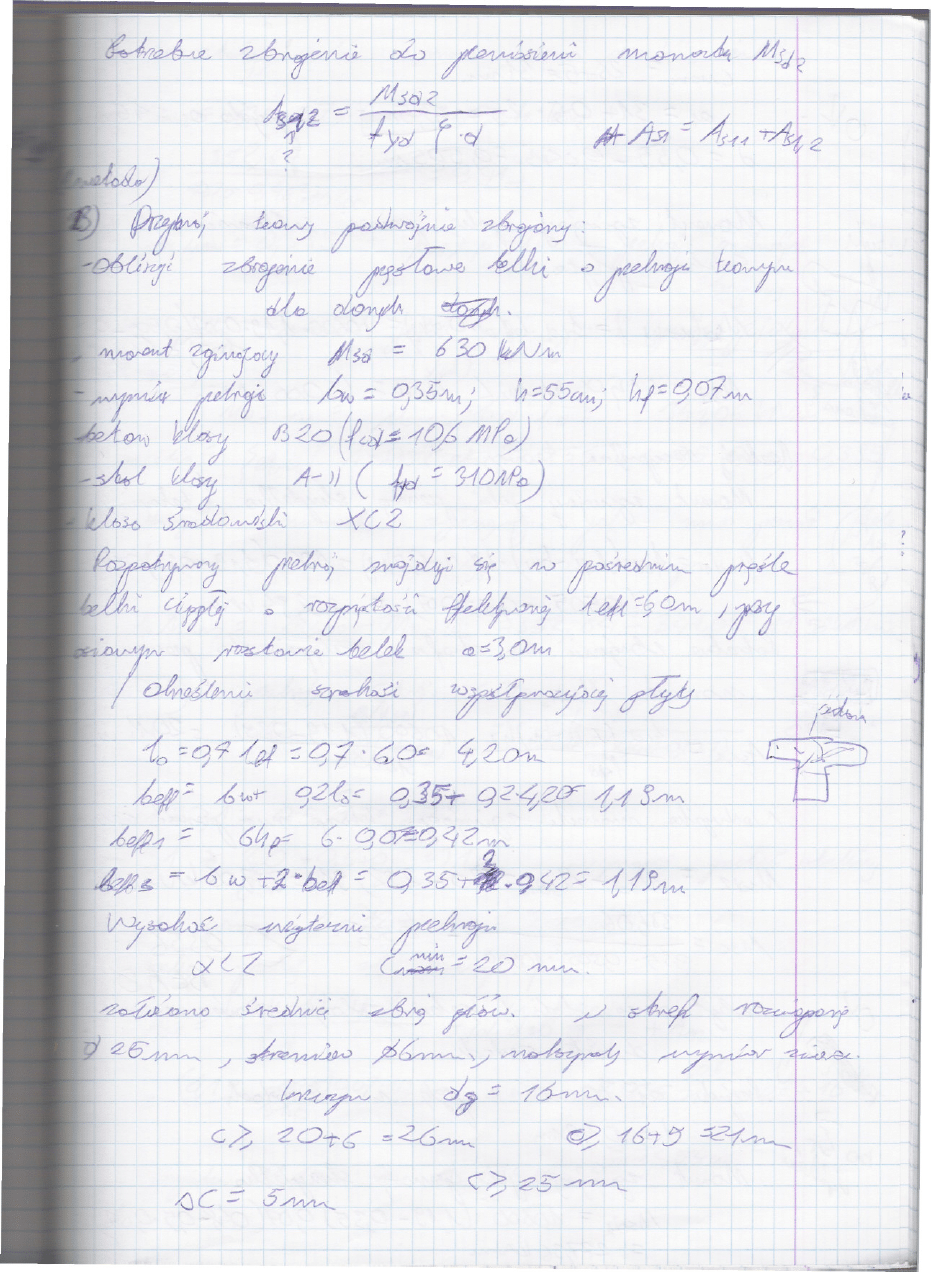 Potrzebne zbrojenie do przeniesienia momentu Msd2
As1,2 = Msd2 / fyd ζ·d
?
As1 = As11 + As1,2
B) Przekrój teowy podwójnie zbrojony:
- Obliczyć zbrojenie podłużne belki o przekroju teowym
dla danych
- moment zginający Msd = 630 kNm
- wymiary przekroju bw = 0,35m; h=55cm; hf=0,07m
beton klasy B20 (fcd = 10,6 MPa)
- stal klasy A-II (fyd = 310MPa)
- klasa środowiska XC2
Rozpatrywany przekrój znajduje się w pośrednim przęśle
belki ciągłej o rozpiętości efektywnej leff=6,0m, przy
osiowym rozstawie belek a=3,0m
/ Określenie szerokości współpracującej płyty
l0 = 0,7 leff = 0,7 · 6,0= 4,20m
beff = bw+ 0,2l0= 0,35+ 0,2·4,20= 1,19m
beff1 = 6hf= 6·0,07=0,42m
beff3 = bw +2·beff = 0,35+2·0,42= 1,19m
Wysokość użyteczna przekroju
XC2 Cmin = 20 mm.
założono średnicę zbroj głów. w strefie rozciąganej
∅ 25mm, strzemion ∅6mm., maksymalny wymiar ziaren
kruszyw dg = 16mm.
C ≥ 20+6 = 26mm C ≥ 16+5 = 21mm
C ≥ 25 mm
ΔC = 5mm